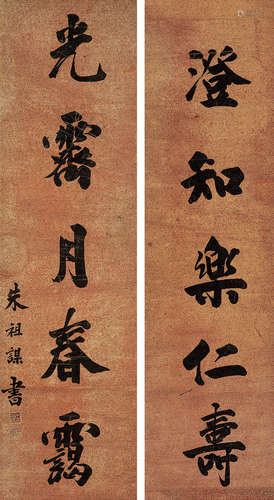 澄知樂仁壽
光霽月春靄
朱祖謀書